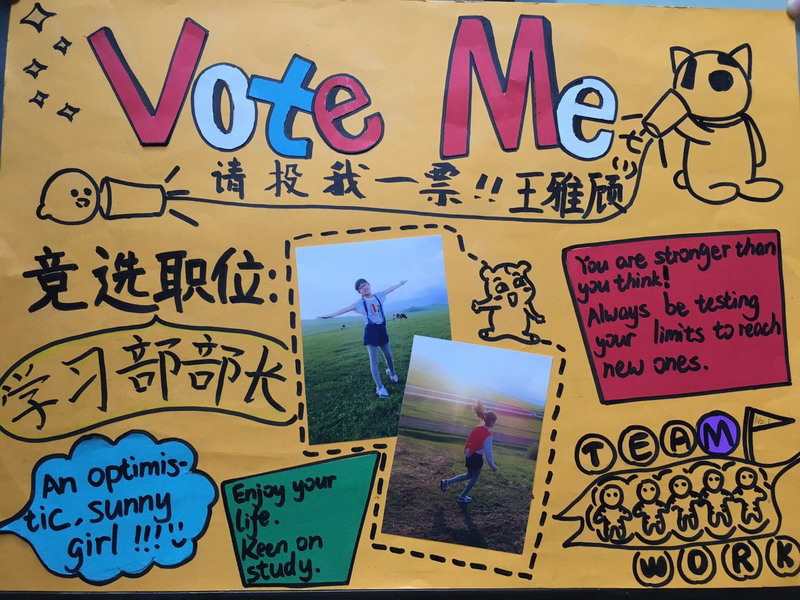 Vote Me
请投我一票!! 王雅顾
竞选职位:
学习部部长
You are stronger than
you think!
Always be testing
your limits to reach
new ones.
An optimis-
tic, sunny
girl !!!
Enjoy your
life.
Keen on
study.
TEAM
WORK